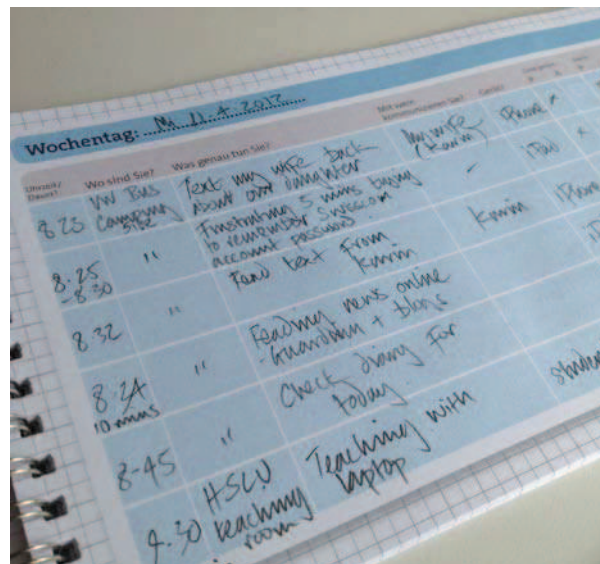 Wochentag: Mi 11.4.2012
Uhrzeit/ Dauer? Wo sind Sie? Was genau tun Sie? Mit wem kommunizieren Sie? Gerät?
8.23 VW Bus Camping site Text my wife back about our daughter My wife (Karin) iPhone x
8.25 - 8.30 " Frustrating 5 mins trying to remember Swisscom account password - iPad x
8.32 " text from Karin Karin iPhone
8.24 10 mins " Reading news online - Guardian + blogs
8-45 " Check diary for today
9.30 HSLU teaching room Teaching with laptop